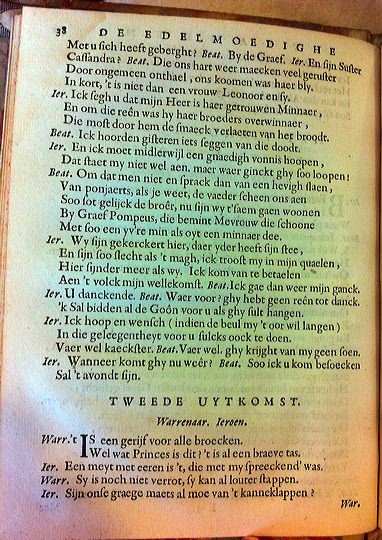 38 DE EDELMOEDIGHE
Met u sich heeft geberght? Beat. By de Graef. Ier. En sijn Suster
Cassandra? Beat. Die ons hart weer maecken veel geruster
Door ongemeen onthael, ons koomen was haer bly.
In kort, 't is niet dan een vrouw Leonoor en sy.
Ier. Ick segh u dat mijn Heer is haer getrouwen Minnaer,
En om die reên was hy haer broeders overwinnaer,
Die most door hem de smaeck verlaeten van het broodt.
Beat. Ick hoorden gisteren iets seggen van die doodt.
Ier. En ick moet midlerwijl een gnaedigh vonnis hoopen,
Dat staet my niet wel aen. maer waer ginckt ghy soo loopen!
Beat. Om dat men niet en sprack dan van een hevigh slaen,
Van ponjaerts, als je weet, de vaeder scheen ons aen
Soo sot gelijck de broêr, nu sijn wy t'saem gaen woonen
By Graef Pompeus, die bemint Mevrouw die schoone
Met soo een yv're min als oyt een minnaer dee.
Ier. Wy sijn gekerckert hier, daer yder heeft sijn stee,
En sijn soo slecht als 't magh, ick troost my in mijn quaelen,
Hier sijnder meer als wy. Ick kom van te betaelen
Aen 't volck mijn wellekomst. Beat. Ick gae dan weer mijn ganck.
Ier. U danckende. Beat. Waer voor? ghy hebt geen reên tot danck.
'k Sal bidden al de Goôn voor u als ghy sult hangen.
Ier. Ick hoop en wensch (indien de beul my 't oor wil langen)
In die geleegentheyt voor u sulcks oock te doen.
Vaer wel kaeckster. Beat. Vaer wel. ghy krijght van my geen soen.
Ier. Wanneer komt ghy nu weêr? Beat. Soo ick u kom besoecken
Sal 't avondt sijn.
TWEEDE UYTKOMST.
Warrenaar. Ieroen.
Warr. 't IS een gerijf voor alle broecken.
Wel wat Princes is dit? 't is al een braeve tas.
Ier. Een meyt met eeren is 't, die met my spreeckend' was.
Warr. Sy is noch niet verrot, sy kan al louter stappen.
Ier. Sijn onse graege maets al moe van 't kanneklappen?
War.